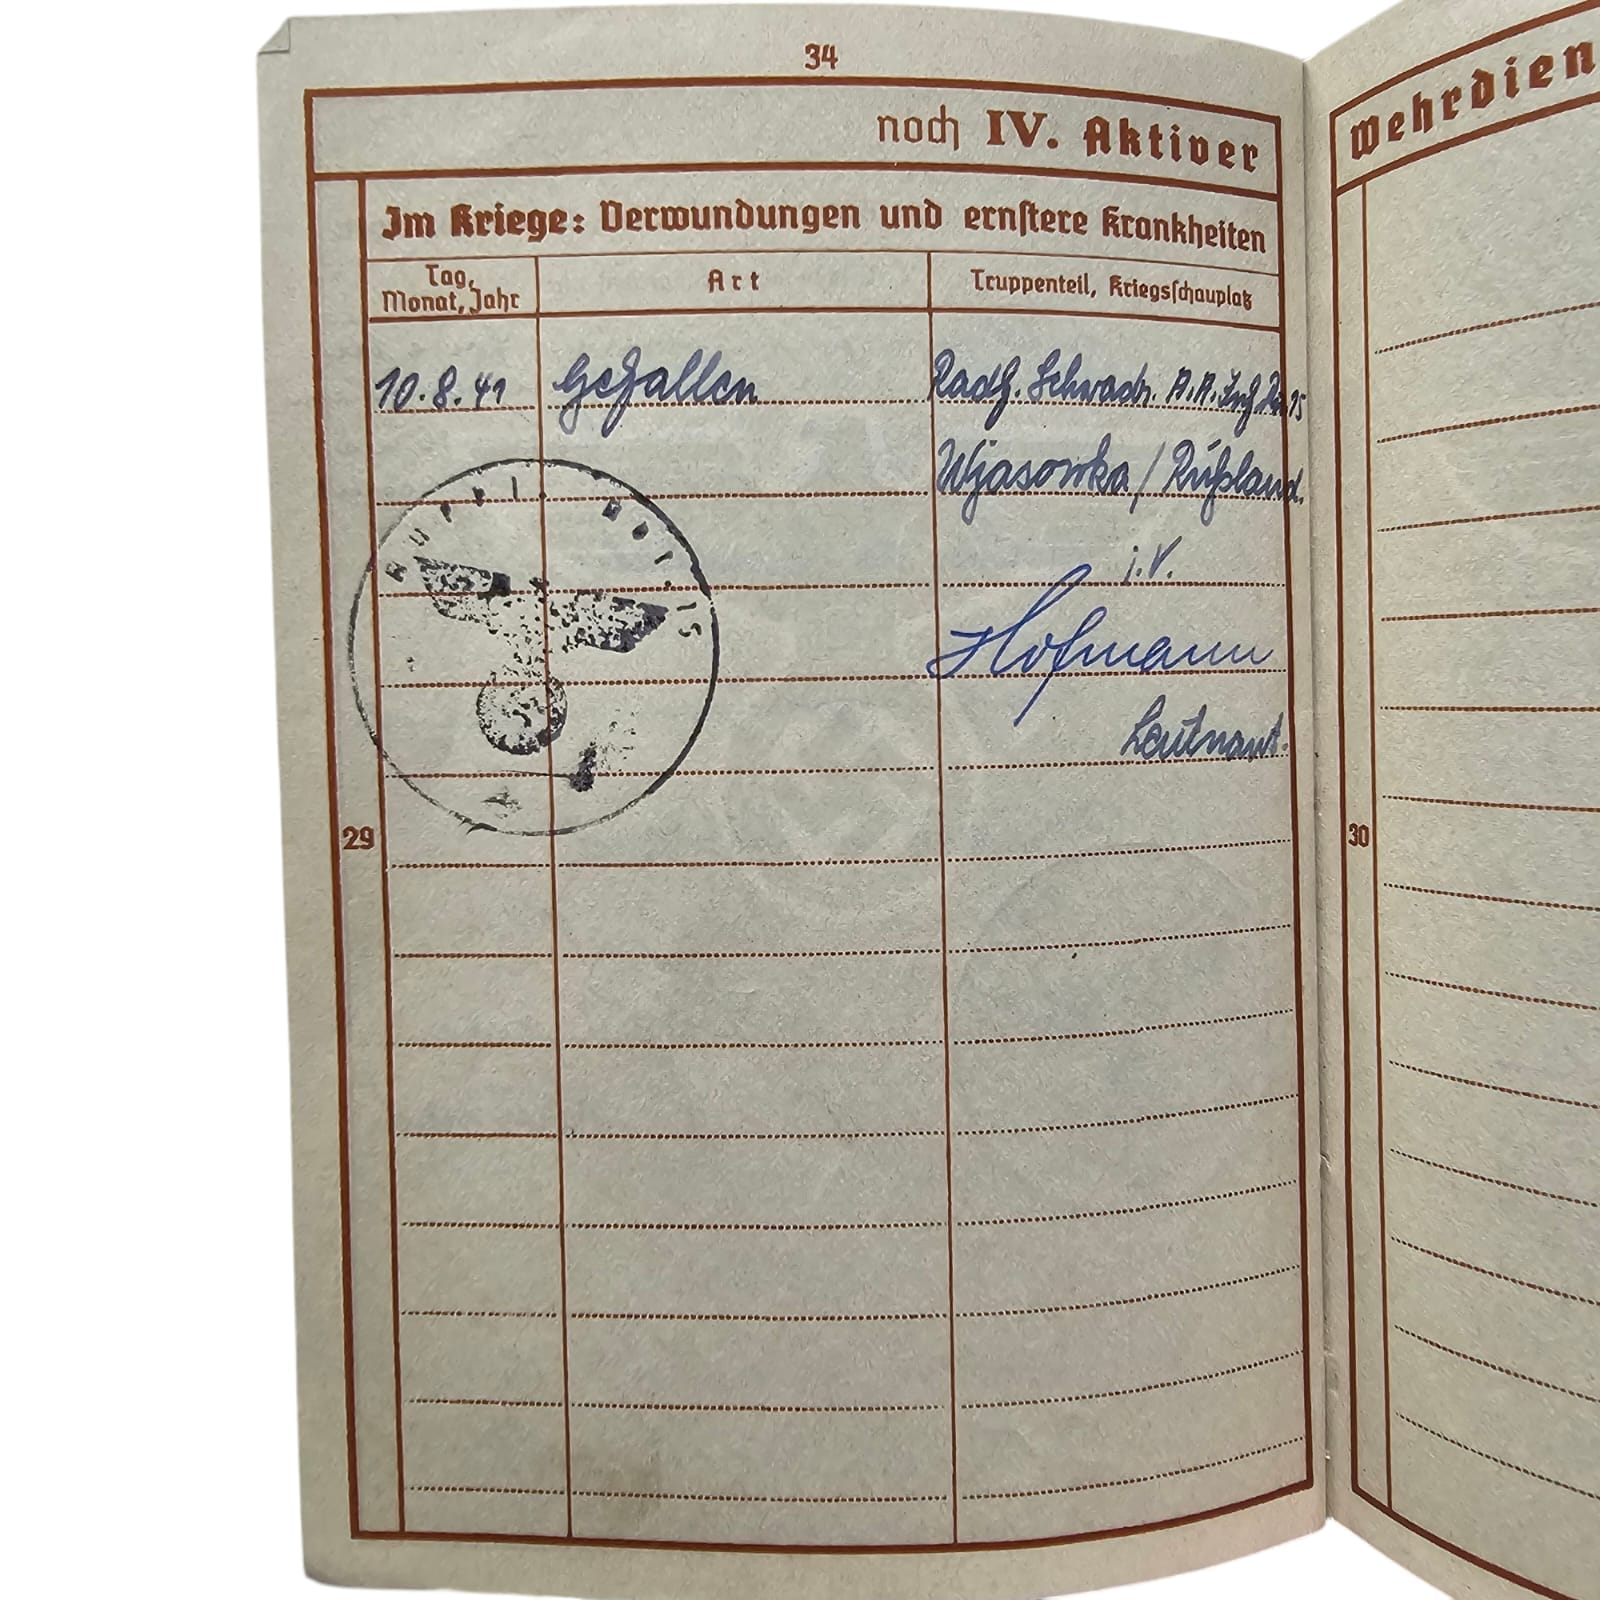 34
noch IV. Aktiver
Wehrdien
Im Kriege: Verwundungen und ernstere Krankheiten
Tag, Monat, Jahr
Art
Truppenteil, Kriegsschauplatz
10.8.41
Gefallen
Radf. Schwadr. A.A.
Wjasowka / Rußland.
i.V.
Hofmann
Leutnant.
29
30